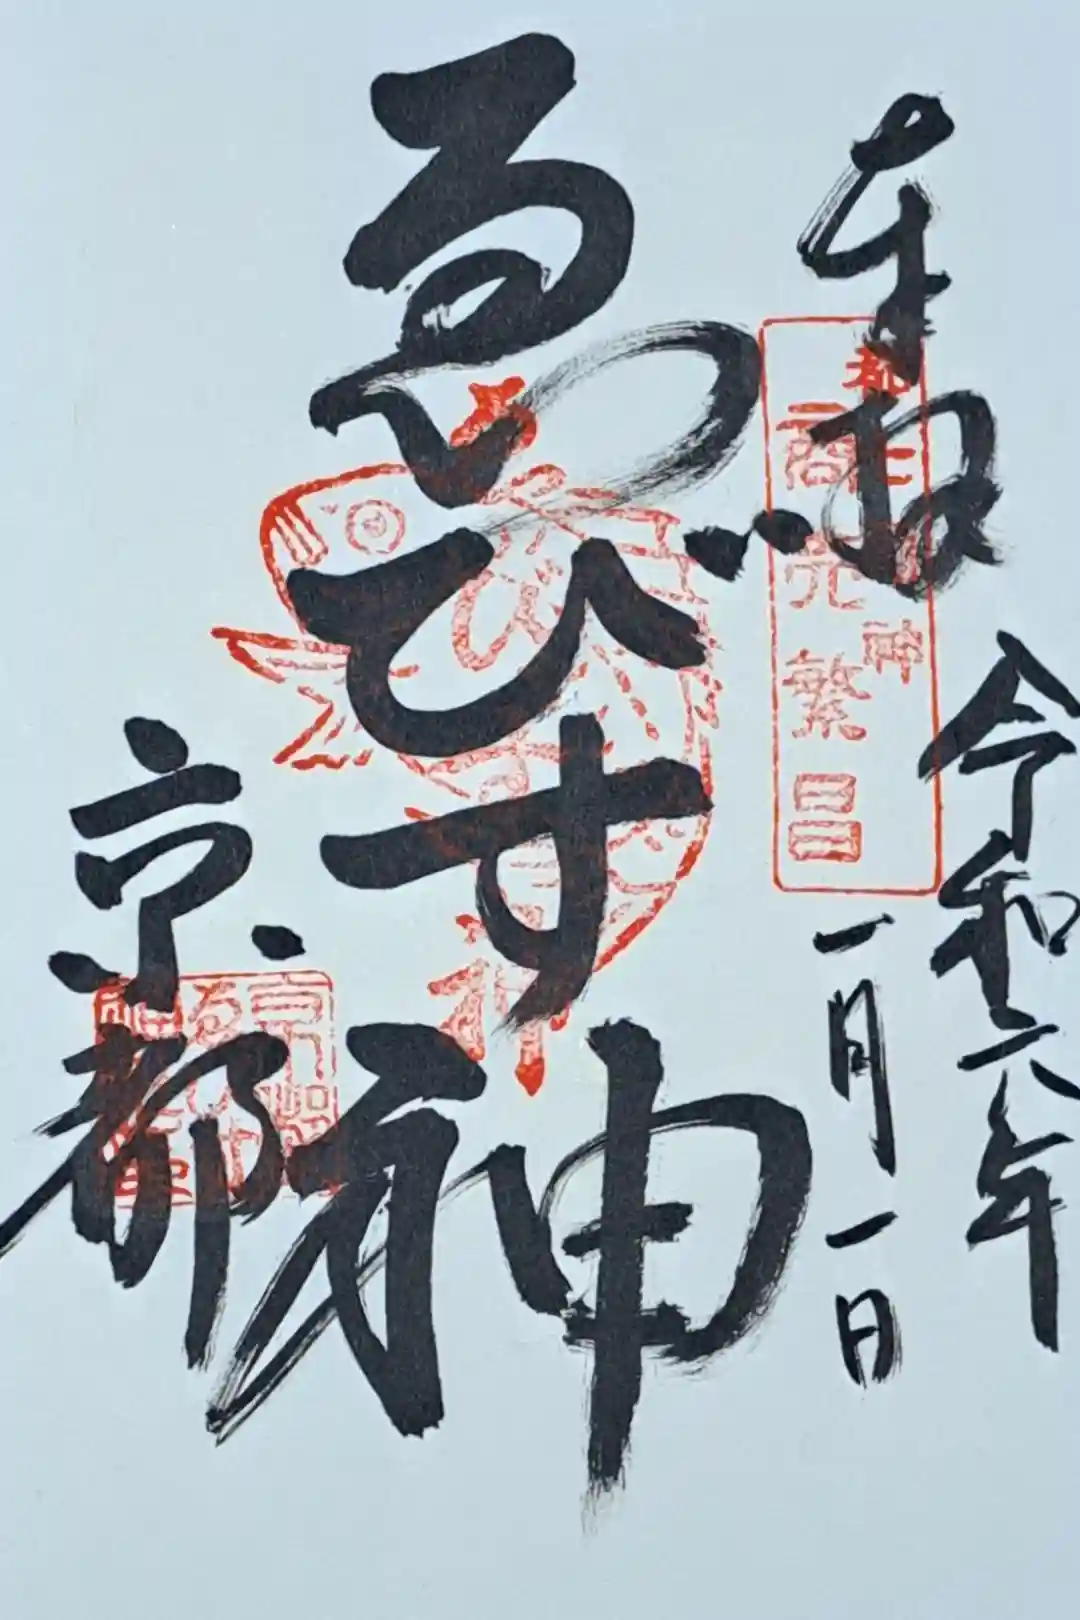 奉拝
令和六年
一月一日
ゑびす神
京都
商売繁昌